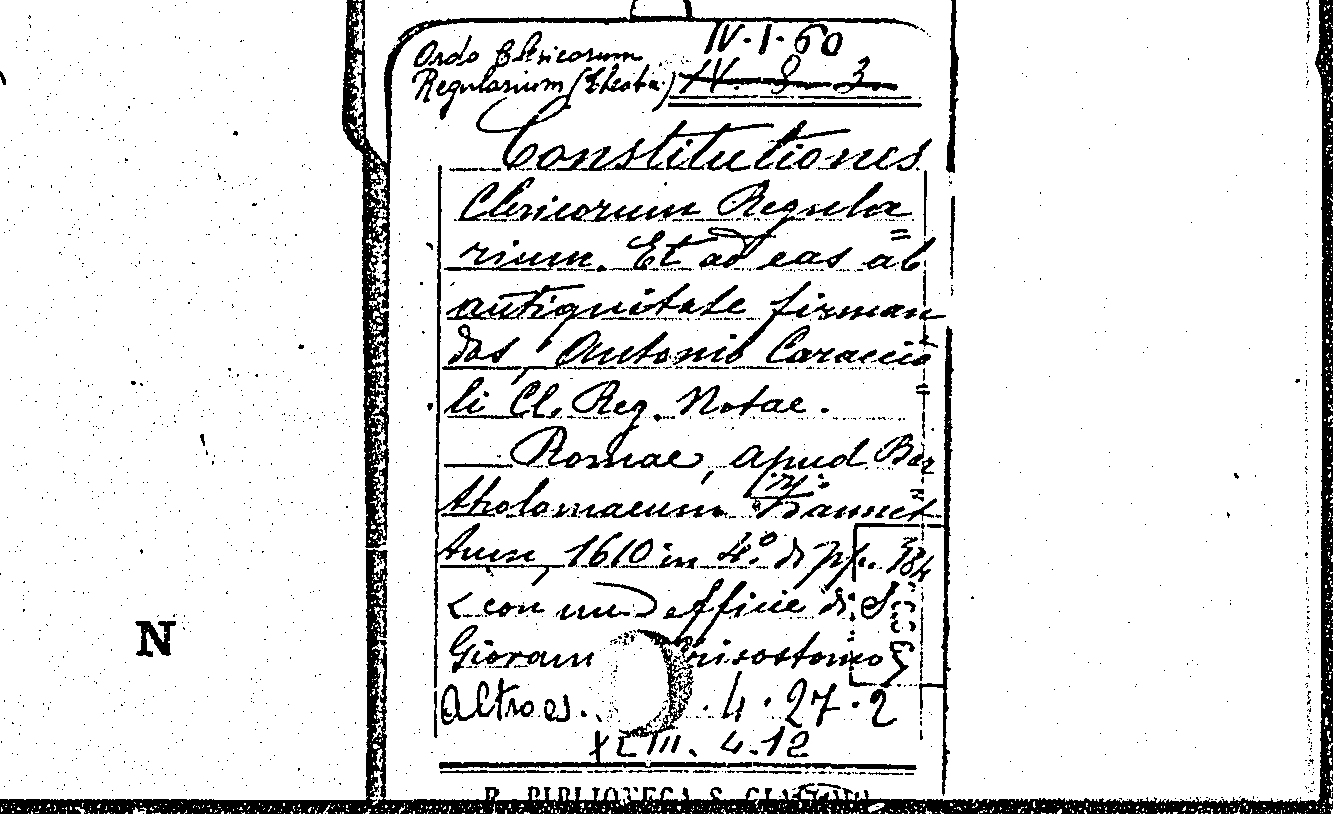 Ordo Clericorum
Regularium (Theatin.)
IV. 1. 60
IV. 8. 3.
Constitutiones
Clericorum Regula=
rium. Et ad eas ab
antiquitate firman=
das, Antonio Caraccio=
li Cl. Reg. Notae.
Romae, apud Bar=
tholomaeum Zannet=
tum, 1610 in 4.º di pp. 384
<con una effigie di S.
Giovanni Crisostomo>
Altro es. . 4. 27. 2
XLIII. 4. 12
R. BIBLIOTECA S. GIACOMO
N